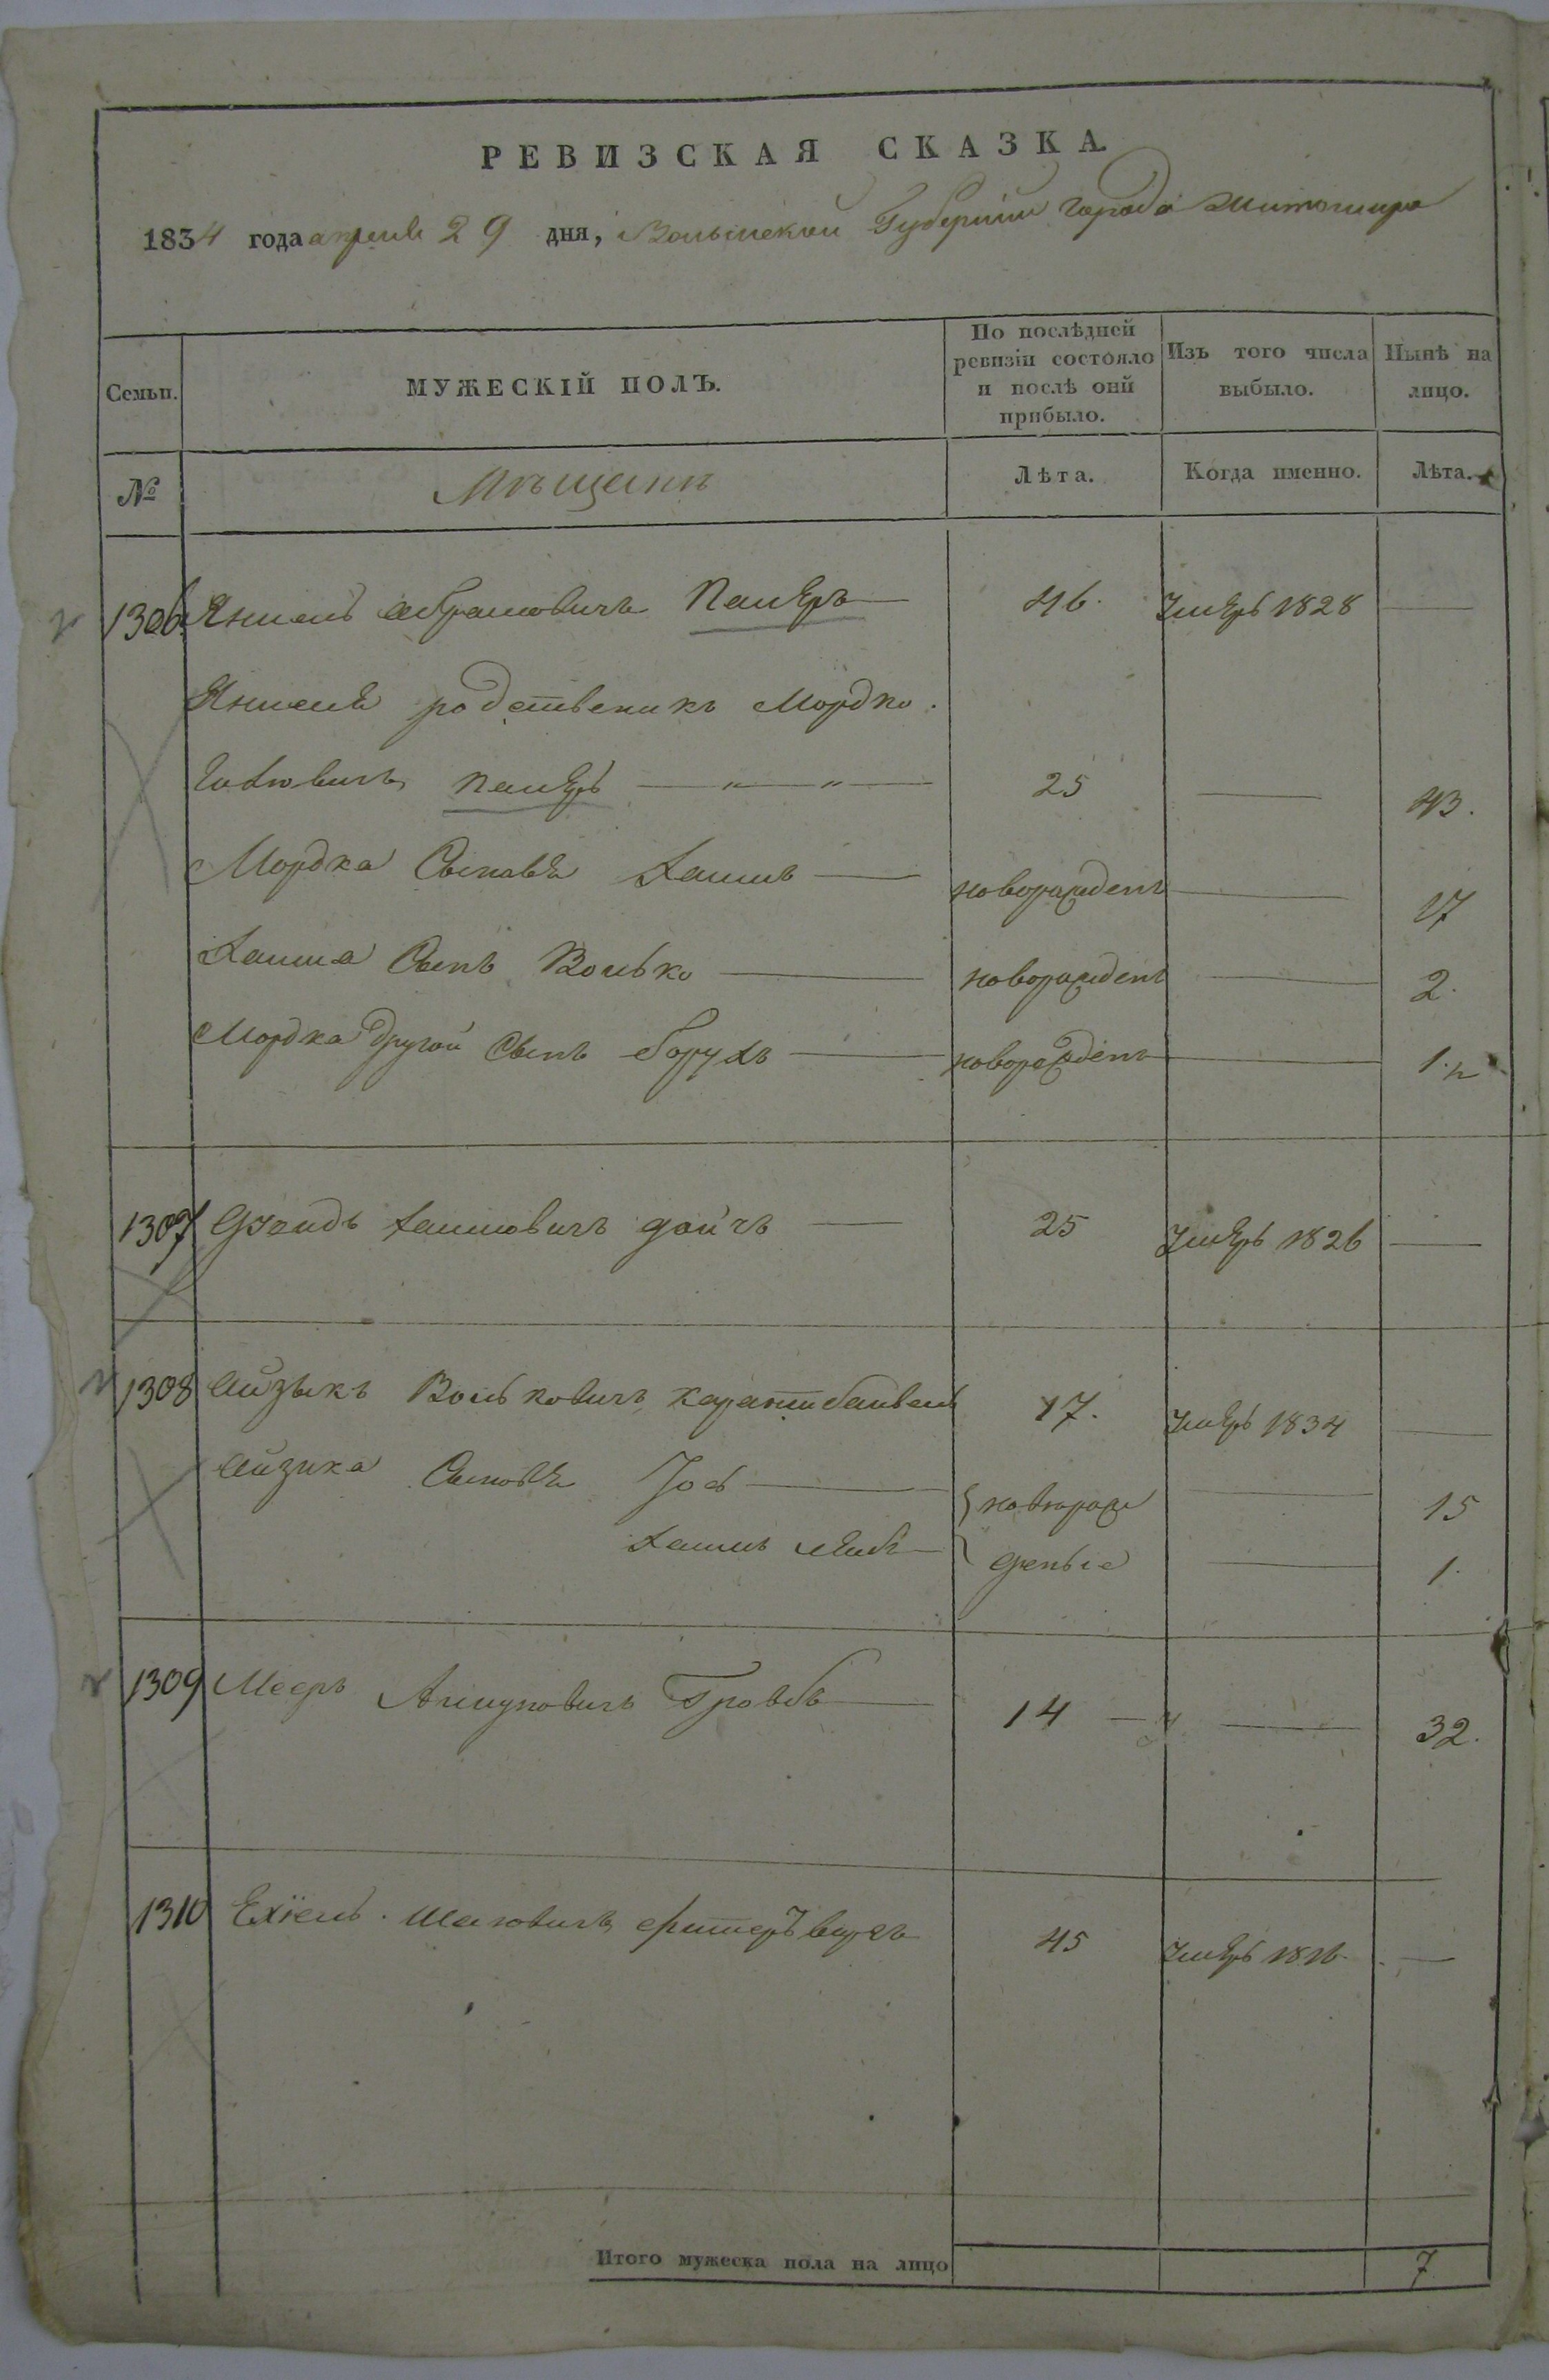 РЕВИЗСКАЯ СКАЗКА.
1834 года апреля 29 дня, Волынской Губернии города Житомира
Семьи. МУЖЕСКІЙ ПОЛЪ. По послѣдней ревизіи состояло и послѣ оной прибыло. Изъ того числа выбыло. Нынѣ на лицо.
№ Мѣщанъ Лѣта. Когда именно. Лѣта.
1306 Абрамовичъ 46. умеръ 1828 —
родственикъ Мордко.
25 — 43.
Мордка Сыновья Хаимъ — новорожденъ — 17
Хаима Сынъ Волько — новорожденъ — 2.
Мордка другой Сынъ Борухъ — новорожденъ — 1.
1307 Хаимовичъ дойчъ — 25 умеръ 1826 —
1308 Айзыкъ Вольковичъ 17. умеръ 1834 —
Айзика Сыновья Іось — новорож — 15
Хаимъ Лейбъ — деные — 1.
1309 Мееръ — 14 — 32.
1310 Ехіель 45 умеръ 1816. —
Итого мужеска пола на лицо 7